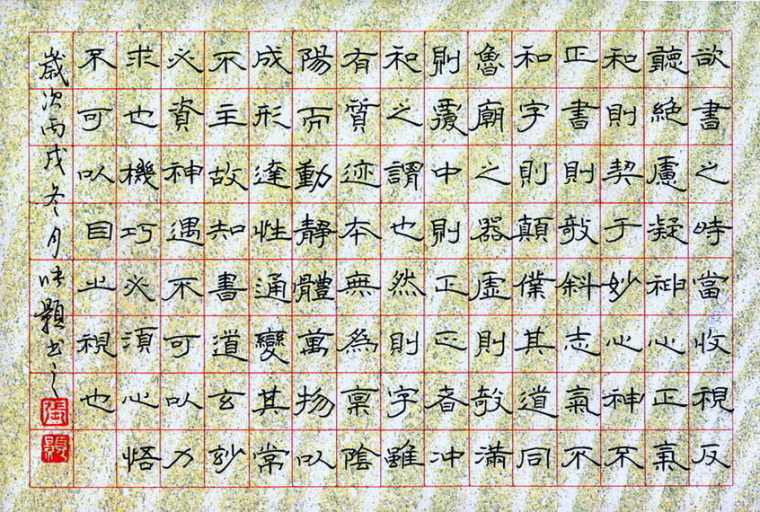 欲書之時當收視反
聽絕慮凝神心正氣
和則契于妙心神不
正書則敧斜志氣不
和字則顛僕其道同
魯廟之器虛則敧滿
則覆中則正正者沖
和之謂也然則字雖
有質迹本無為稟陰
陽而動靜體萬物以
成形達性通變其常
不主故知書道玄玅
必資神遇不可以力
求也機巧必須心悟
不可以目止視也
歲次丙戌冬月張書之